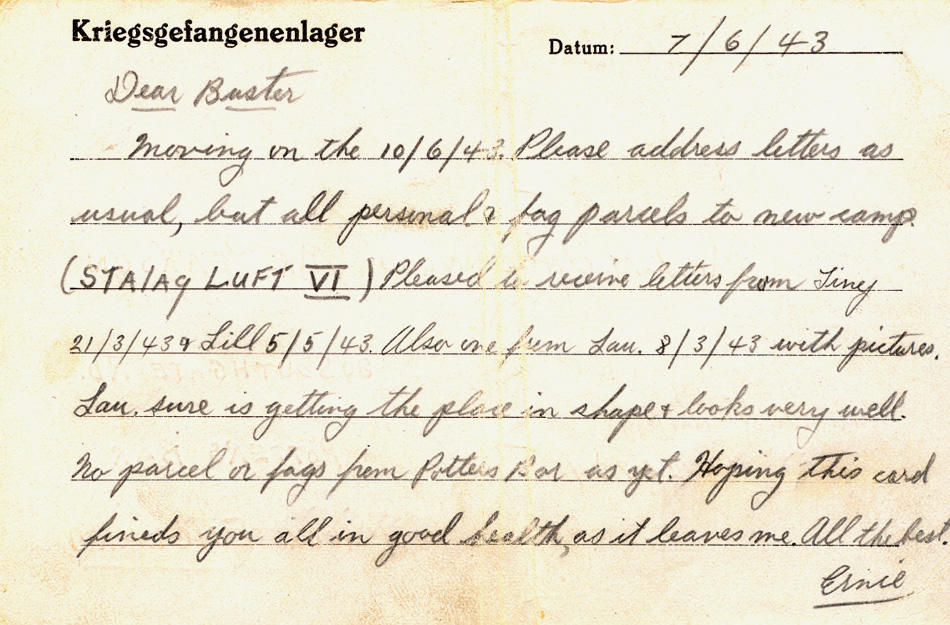 Kriegsgefangenenlager
Datum: 7/6/43
Dear Buster
Moving on the 10/6/43. Please address letters as
usual, but all personal & fag parcels to new camp.
(STAlAg LUFT VI) Pleased to receive letters from Tiny
21/3/43 & Lill 5/5/43. Also one from Lau. 8/3/43 with pictures.
Lau. sure is getting the place in shape & looks very well.
No parcel or fags from Potters Bar as yet. Hoping this card
fineds you all in good health, as it leaves me. All the best.
Ernie